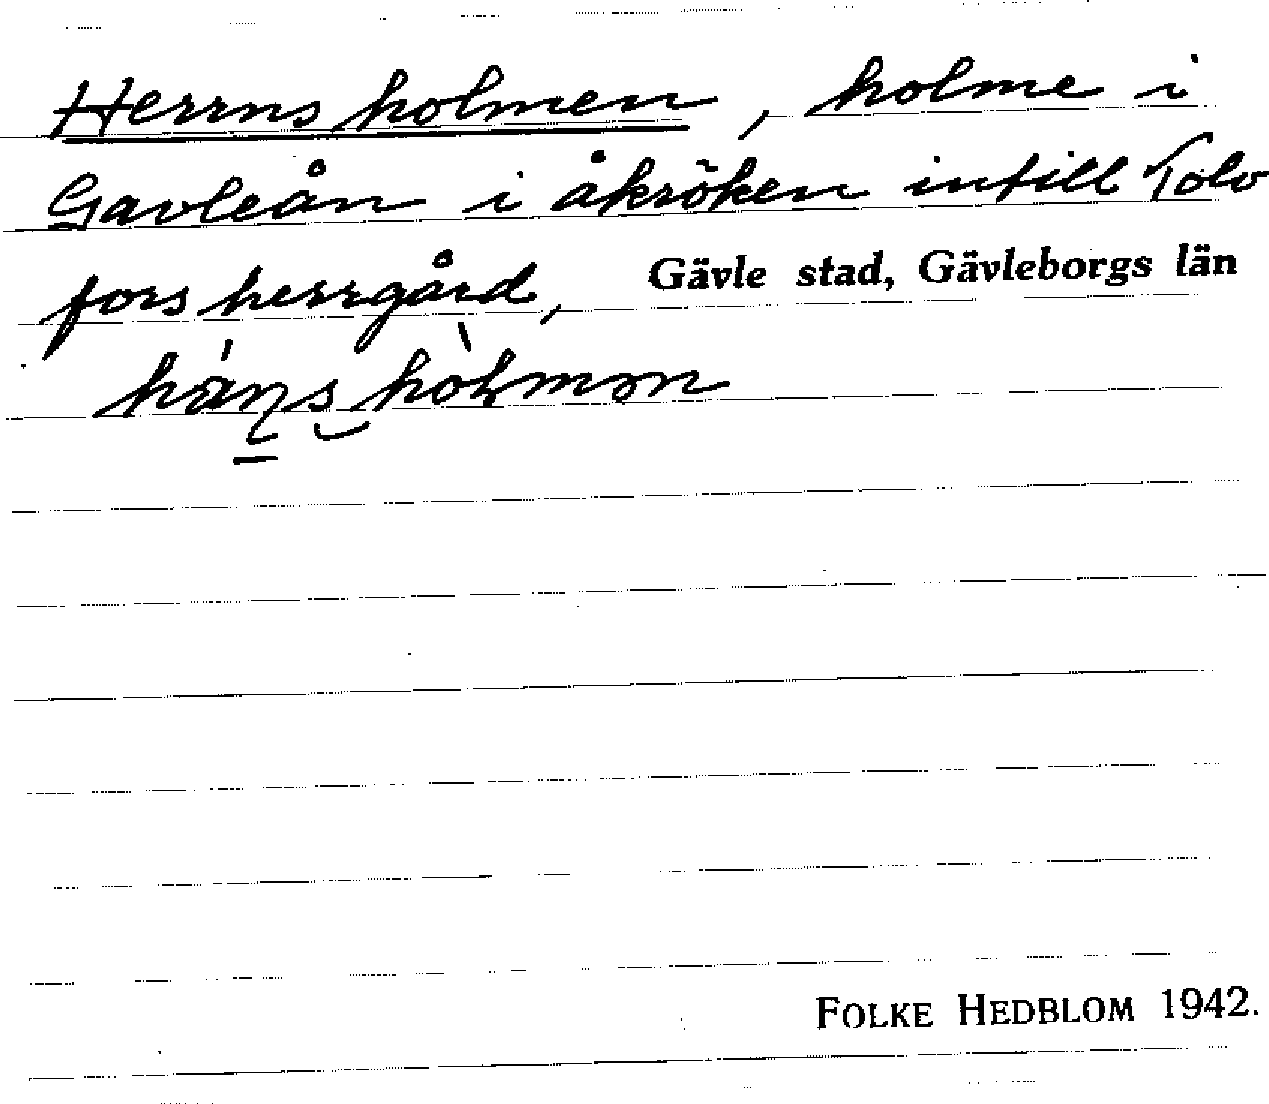 Herrnsholmen, holme i
Gavleån i åkröken intill Tolv
fors herrgård, Gävle stad, Gävleborgs län
FOLKE HEDBLOM 1942.